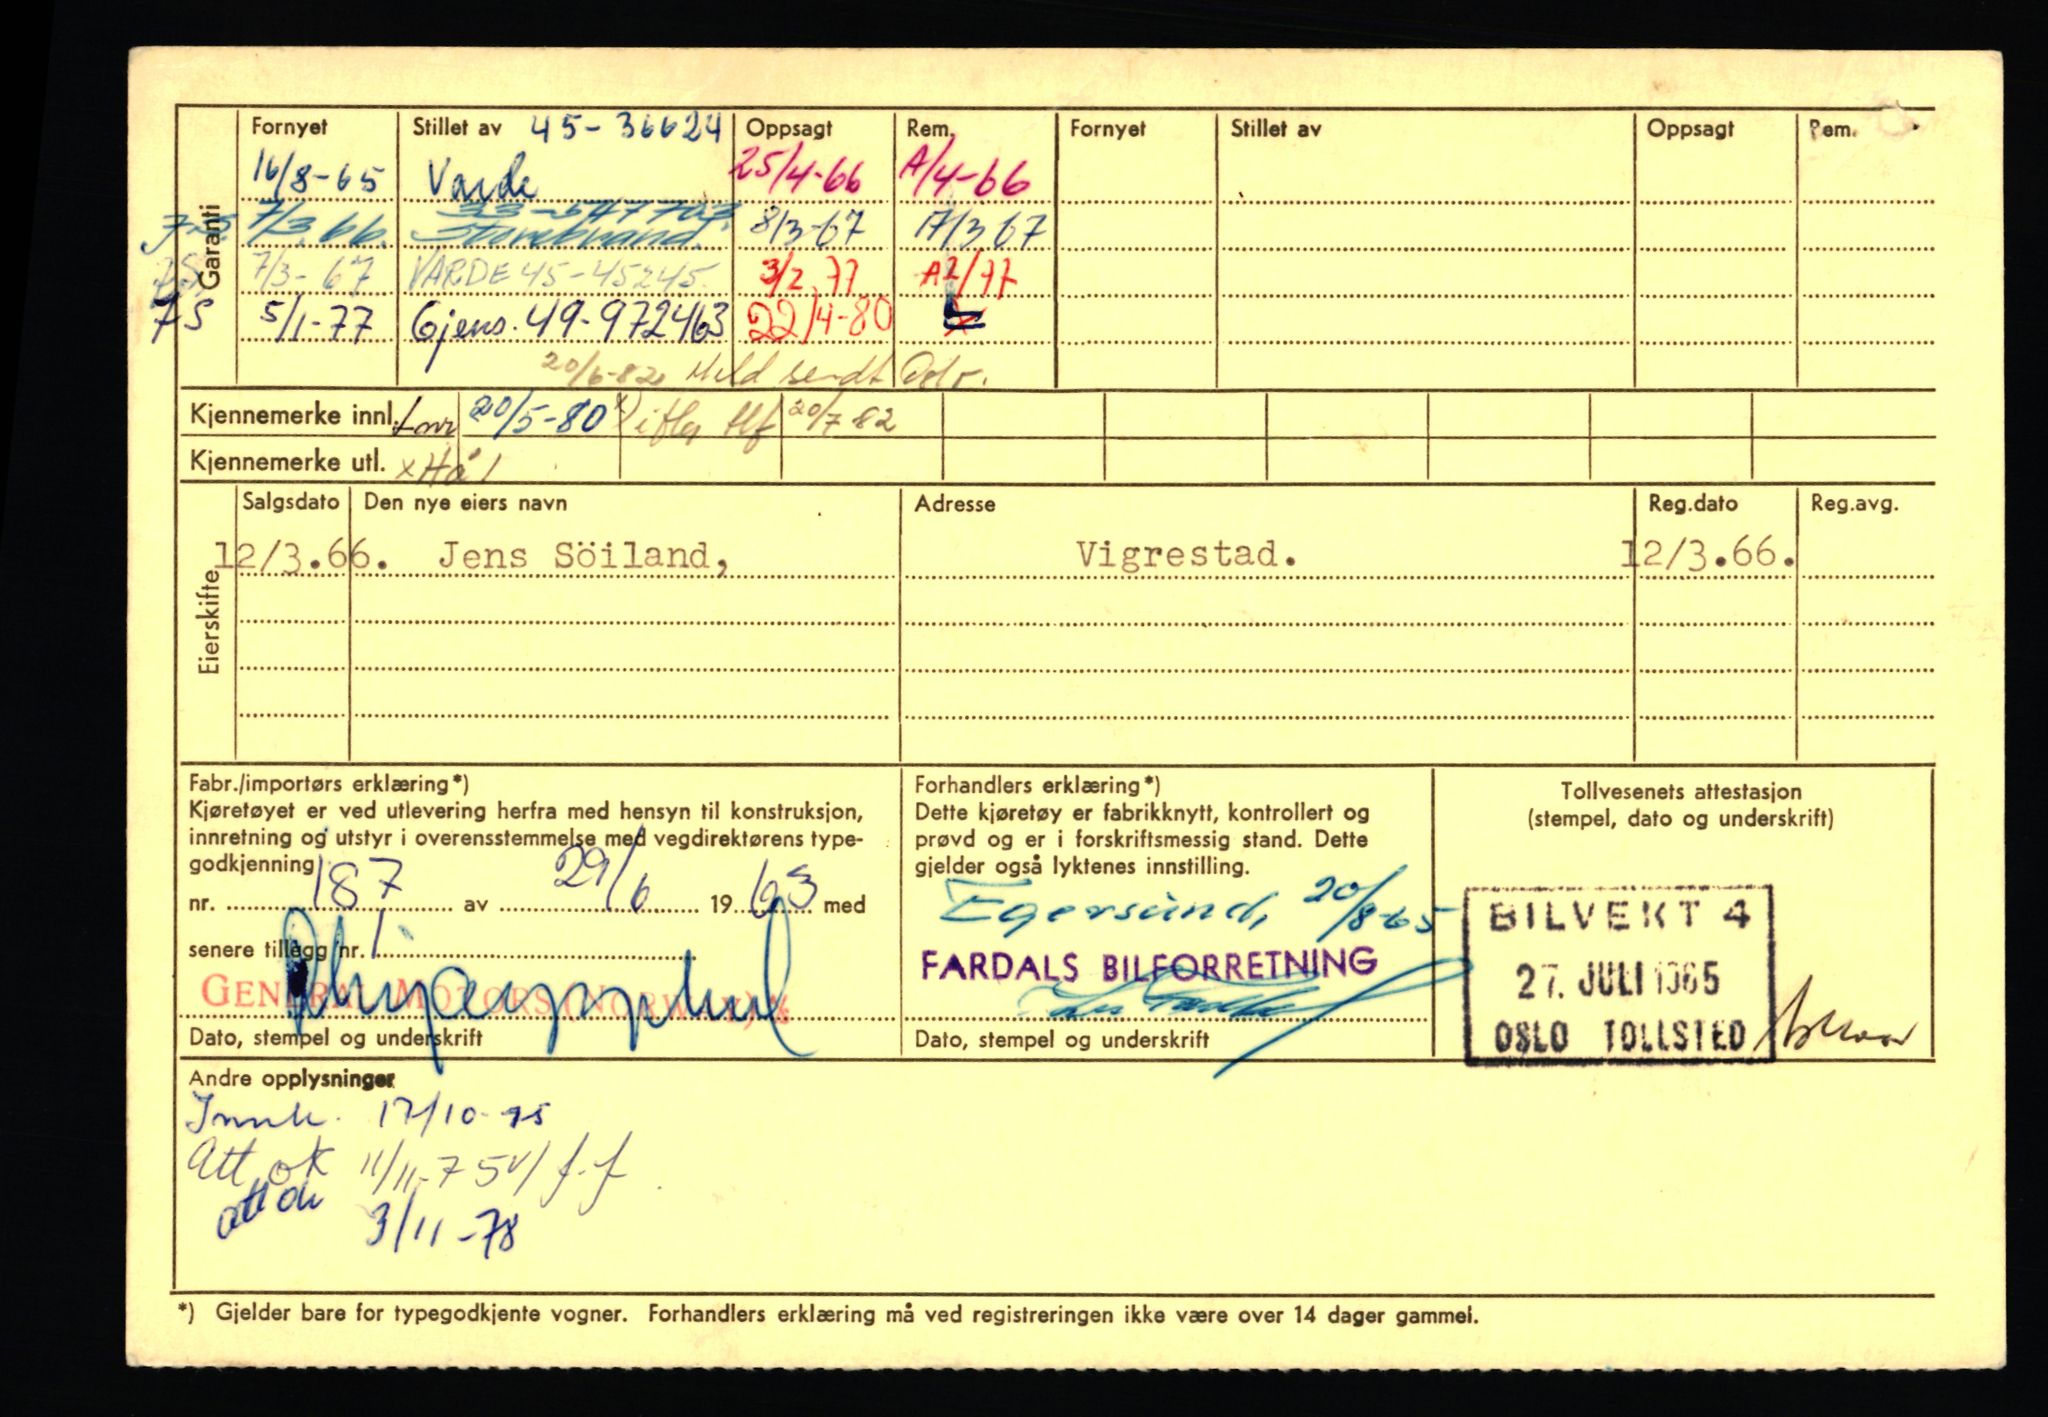 Garanti
Fornyet Stillet av 45-36624 Oppsagt Rem. Fornyet Stillet av Oppsagt Rem.
16/8-65 Varde 25/4-66 A/4-66
7/3.66. Storebrand. 8/3-67 17/3 67
7/3-67 VARDE 45-45245. 3/2.77 A2/77
7S 5/1-77 Gjens. 49-972463 22/4-80
20/6-82 Meld sendt
Kjennemerke innl. 20/5-80 x) tlf 20/7 82
Kjennemerke utl. x Hå
Eierskifte
Salgsdato Den nye eiers navn Adresse Reg.dato Reg.avg.
12/3.66. Jens Söiland, Vigrestad. 12/3.66.
Fabr./importørs erklæring*)
Kjøretøyet er ved utlevering herfra med hensyn til konstruksjon,
innretning og utstyr i overensstemmelse med vegdirektørens type-
godkjenning
nr. 187 av 29/6 1963 med
senere tillegg nr. 1
GENERAL MOTORS (NORWAY) A/S
Dato, stempel og underskrift
Forhandlers erklæring*)
Dette kjøretøy er fabrikknytt, kontrollert og
prøvd og er i forskriftsmessig stand. Dette
gjelder også lyktenes innstilling.
Egersund, 20/8-65
FARDALS BILFORRETNING
Dato, stempel og underskrift
Tollvesenets attestasjon
(stempel, dato og underskrift)
BILVEKT 4
27. JULI 1965
OSLO TOLLSTED
Andre opplysninger
Innk. 17/10-75
Att ok 11/11-75 f.f
att ok
3/11-78
*) Gjelder bare for typegodkjente vogner. Forhandlers erklæring må ved registreringen ikke være over 14 dager gammel.